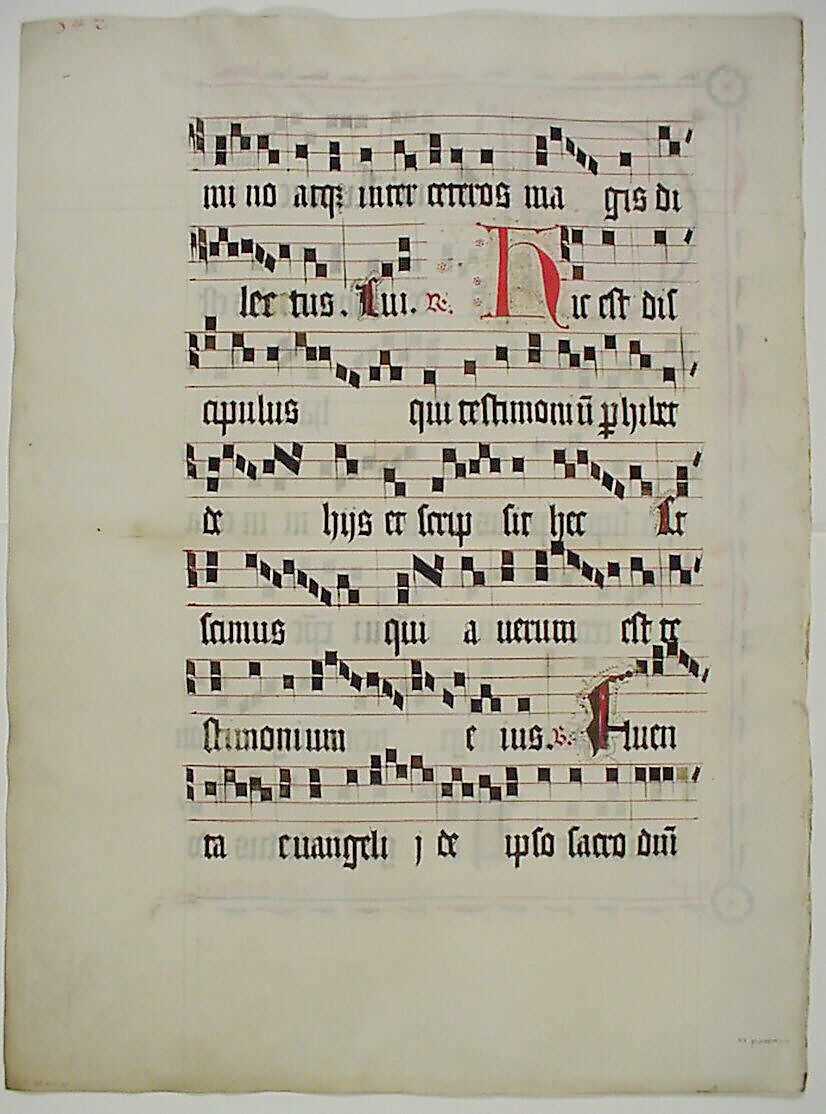 mi no atq; inter ceteros ma gis di
lec tus. Sui. ℟. Hic est dis
cipulus qui testimoniū ꝑhibet
de hijs et scrip sit hec Et
scimus qui a uerum est te
stimonium e ius. ℣. Fluen
ta euangeli j de ipso sacro dn̄i